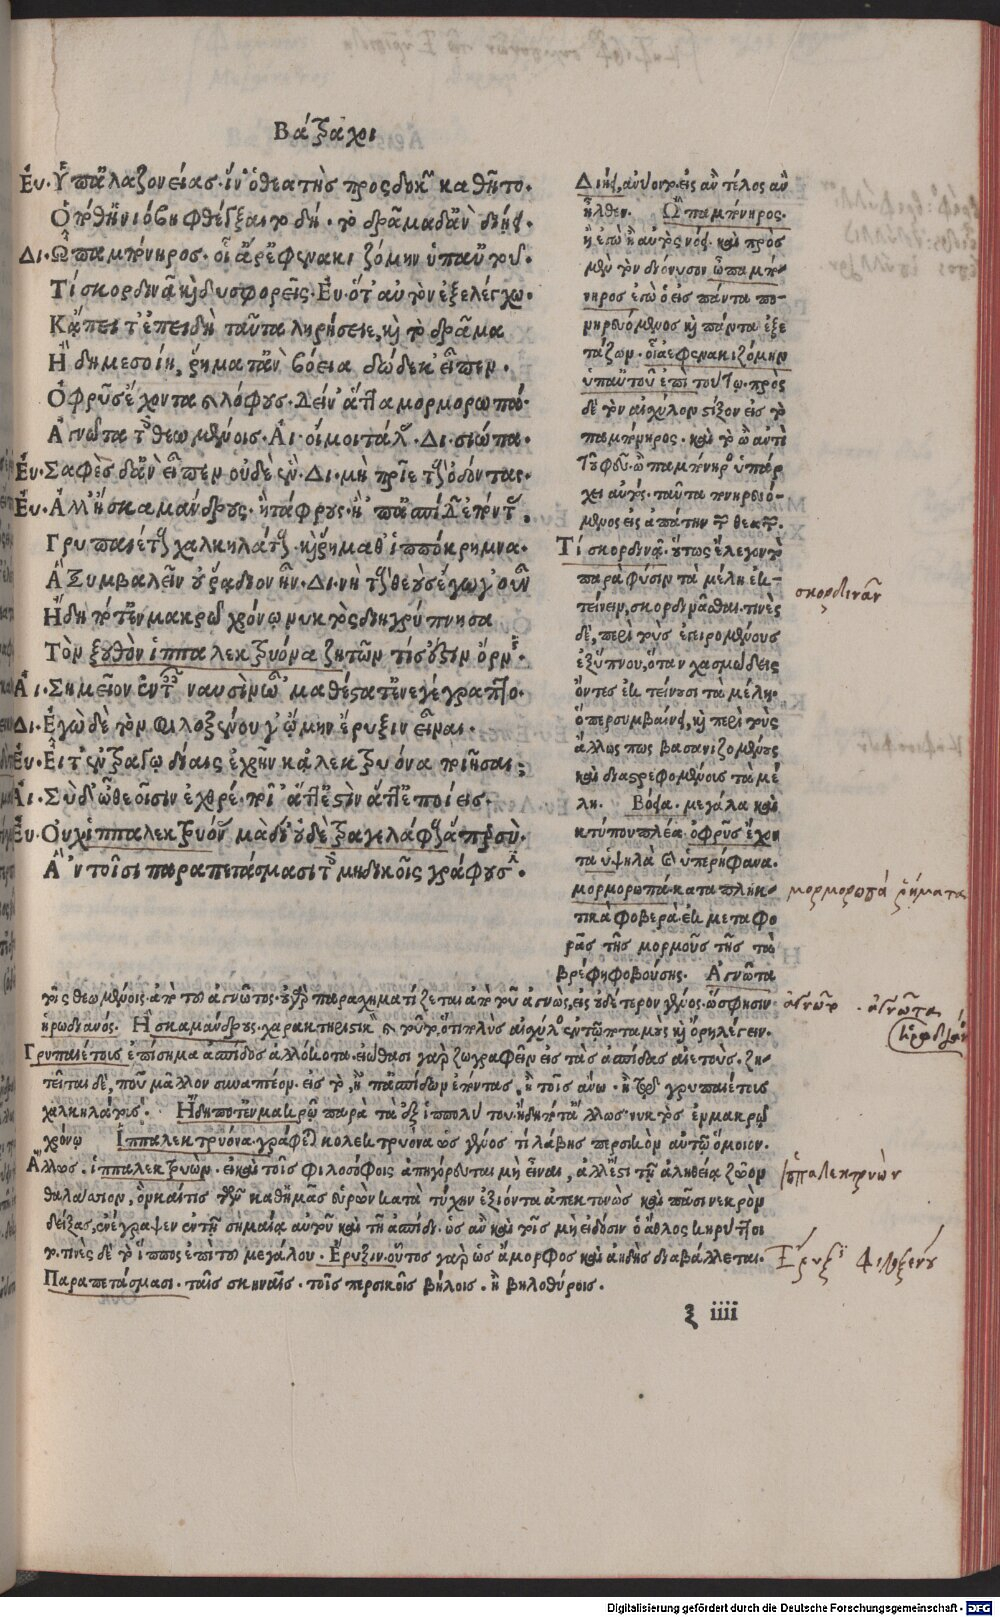 Βάτραχοι
Ευ. Ὑπ' ἀλαζονείας, ἵν' ὁ θεατὴς προσδοκῶν καθῆτο.
Ὁπόθ' ἡ Νιόβη φθέγξαιτο δή. τὸ δρᾶμα δ' ἂν διῄει.
Δι. Ὢ παμπόνηρος. οἷ' ἄρ' ἐφενακιζόμην ὑπ' αὐτοῦ.
Τί σκορδινᾷ καὶ δυσφορεῖς. Ευ. ὅτ' αὐτὸν ἐξελέγχω.
Κἄπειτ' ἐπειδὴ ταῦτα ληρήσειε, καὶ τὸ δρᾶμα
Ἤδη μεσοίη, ῥήματ' ἂν βόεια δώδεκ' εἶπεν.
Ὀφρῦς ἔχοντα καὶ λόφους. δείν' ἄττα μορμορωπά.
Ἄγνωτα τοῖς θεωμένοις. Αι. οἴμοι τάλας. Δι. σιώπα.
Ευ. Σαφὲς δ' ἂν εἶπεν οὐδὲ ἕν. Δι. μὴ πρῖε τοὺς ὀδόντας.
Ευ. Ἀλλ' ἢ σκαμάνδρους. ἢ τάφρους. ἢ 'π' ἀσπίδων ἐπόντας.
Γρυπαιέτους χαλκηλάτους. καὶ ῥήμαθ' ἱππόκρημνα.
Ἃ ξυμβαλεῖν οὐ ῥάδιον ἦν. Δι. νὴ τοὺς θεοὺς ἐγὼ γ' οὖν
Ἤδη ποτ' ἐν μακρῷ χρόνῳ νυκτὸς διηγρύπνησα
Τὸν ξουθὸν ἱππαλεκτρυόνα ζητῶν τίς ἐστιν ὄρνις.
Αι. Σημεῖον ἐν ταῖς ναυσὶν ὦ 'μαθέστατ' ἐνεγέγραπτο.
Δι. Ἐγὼ δὲ τὸν Φιλοξένου γ' ᾤμην ἔρυξιν εἶναι.
Ευ. Εἶτ' ἐν τραγῳδίαις ἐχρῆν κἀλεκτρυόνα ποιῆσαι;
Αι. Σὺ δ' ὦ θεοῖσιν ἐχθρὲ ποῖ' ἄττ' ἐστὶν ἅττ' ἐποίεις.
Ευ. Οὐχ ἱππαλεκτρυόνας μὰ δί' οὐδὲ τραγελάφους ἅπερ σύ.
Ἃ 'ν τοῖσι παραπετάσμασι τοῖς μηδικοῖς γράφουσιν.
Διῄει, ἀνύοιτο. εἰς αὐτὸ τέλος ἂν
ἦλθεν. Ὢ παμπόνηρος.
ἢ ἐγὼ ἢ αὐτὸς νόει. καὶ πρὸς
μὲν τὸν διόνυσον ὦ παμπό-
νηρος ἐγὼ ὁ εἰς πάντα πο-
νηρευόμενος καὶ πάντα ἐξε
τάζων. οἷα ἐφενακιζόμην
ὑπ' αὐτοῦ ἐπὶ τούτῳ. πρὸς
δὲ τὸν αἰσχύλον στίζον εἰς τὸ
παμπόνηρος. καὶ τὸ ὢ ἀντὶ
τοῦ φεῦ. ὢ παμπόνηρος ὑπάρ
χει αὐτός. ταῦτα πονηρευό-
μενος εἰς ἀπάτην τῶν θεατῶν.
Τί σκορδινᾷ. οὕτως ἔλεγον τὸ
παρὰ φύσιν τὰ μέλη ἐκ-
τείνειν, σκορδινᾶσθαι. τινὲς
δὲ, περὶ τοὺς ἐγειρομένους
ἐξ ὕπνου, ὅταν χασμώδεις
ὄντες ἐκτείνουσι τὰ μέλη.
ὅπερ συμβαίνει, καὶ περὶ τοὺς
ἄλλως πως βασανιζομένους
καὶ διαστρεφομένους τὰ μέ
λη. Βόεια. μεγάλα καὶ
κτύπου πλέα. ὀφρῦς ἔχον
τα ὑψηλὰ καὶ ὑπερήφανα.
μορμορωπά. καταπληκ-
τικὰ φοβερὰ. ἐκ μεταφο
ρᾶς τῆς μορμοῦς τῆς τὰ
βρέφη φοβούσης. Ἄγνωτα
τοῖς θεωμένοις. ἀπὸ τοῦ ἀγνῶτος. οὐ γὰρ παρασχηματίζεται ἀπὸ τοῦ ἀγνὼς, εἰς οὐδέτερον γένος. ὥς φησιν
ἡρωδιανός. Ἢ σκαμάνδρους. χαρακτηριστικὰ καὶ τοῦτο, ὅτι πλοὺς αἰσχύλος ἐν τῷ ποταμοὺς καὶ ὄρη λέγειν.
Γρυπαιέτους ἐπίσημα ἀσπίδος ἀλλόκοτα. εἰώθασι γὰρ ζωγραφεῖν εἰς τὰς ἀσπίδας αἰετούς. ζη-
τεῖται δὲ, ποῦ μᾶλλον συναπτέον. εἰς τὸ, ἢ 'π' ἀσπίδων ἐπόντας. ἢ τοῖς ἄνω. ἢ τοὺς γρυπαιέτους
χαλκηλάτους. Ἤδη ποτ' ἐν μακρῷ παρὰ τὰ ἐξ ἱππολύτου. ἤδη ποτ' ἄλλως νυκτὸς ἐν μακρῷ
χρόνῳ Ἱππαλεκτρυόνα. γράφεται κολεκτρυόνα ὡς γένος τι λάβῃς περσικὸν αὐτῷ ὅμοιον.
Ἄλλως. ἱππαλεκτρυών. εἰ καὶ τοῖς φιλοσόφοις ἀπηγόρευται μὴ εἶναι, ἀλλ' ἔστι τῇ ἀληθείᾳ ζῷον
θαλάσσιον, ὃν καί τις τῶν καθ' ἡμᾶς εὑρὼν κατὰ τύχην ἐξιόντα ἀπεκτονὼς καὶ πᾶσι νεκρὸν
δείξας, ἐνέγραψεν ἐν τῇ σημαίᾳ αὐτοῦ καὶ τῇ ἀσπίδι. ὡς ἂν καὶ τοῖς μὴ εἰδόσιν ὁ ἆθλος κηρύττοι
το. τινὲς δὲ τὸ ἵππος ἐπὶ τοῦ μεγάλου. Ἔρυξιν. οὗτος γὰρ ὡς ἄμορφος καὶ ἀηδὴς διαβάλλεται.
Παραπετάσμασι. ταῖς σκηναῖς. τοῖς περσικοῖς βήλοις. ἢ βηλοθύροις.
ξ iiii
σκορδινᾶν
μορμορωπά ῥήματα
ἀγνώτων . ἀγνῶτα
ἡρωδιανός
ἱππαλεκτρυών
Ἔρυξις Φιλοξένου
Digitalisierung gefördert durch die Deutsche Forschungsgemeinschaft - DFG